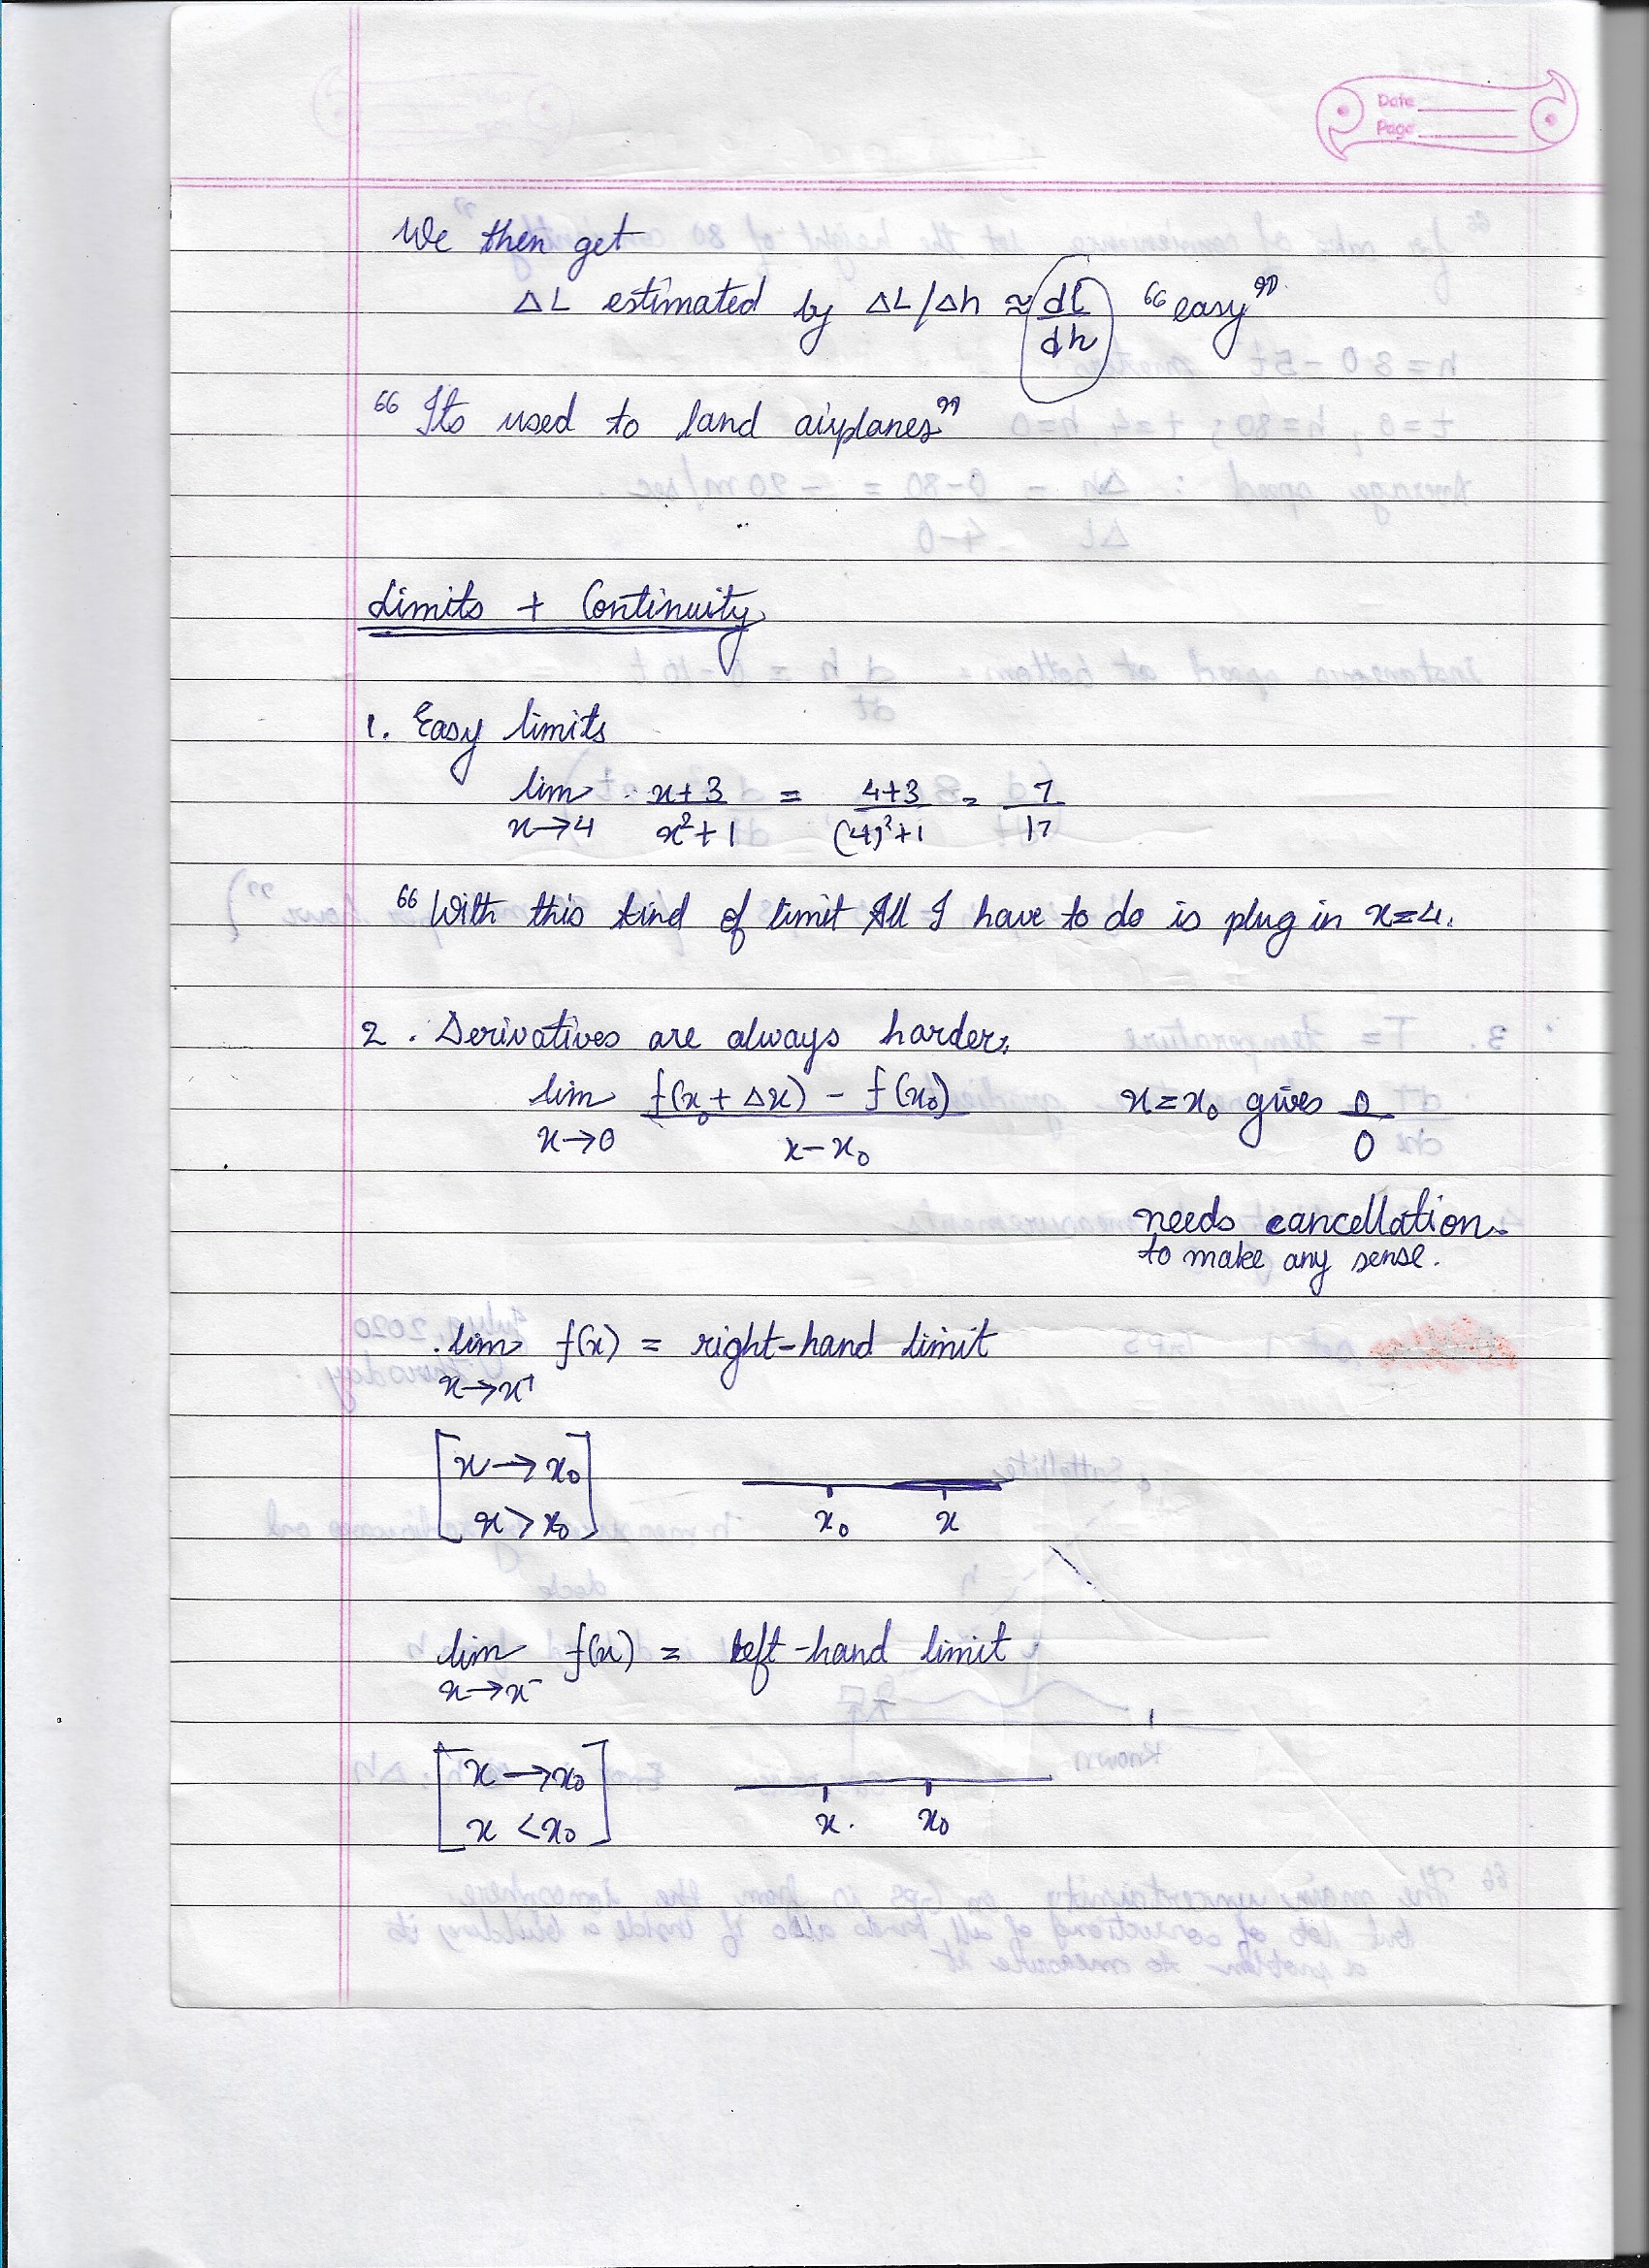 Date
Page
We then get
ΔL estimated by ΔL/Δh ≈ dL/dh "easy"
"Its used to land airplanes"
Limits + Continuity
1. Easy limits
lim x→4 x+3/x²+1 = 4+3/(4)²+1 = 7/17
"With this kind of limit All I have to do is plug in x=4.
2. Derivatives are always harder;
lim x→0 f(x₀+Δx) - f(x₀)/x-x₀ x=x₀ gives 0/0
needs cancellation
to make any sense.
lim x→x⁺ f(x) = right-hand limit
[x→x₀
x>x₀]
x₀ x
lim x→x⁻ f(x) = left-hand limit
[x→x₀
x<x₀]
x. x₀